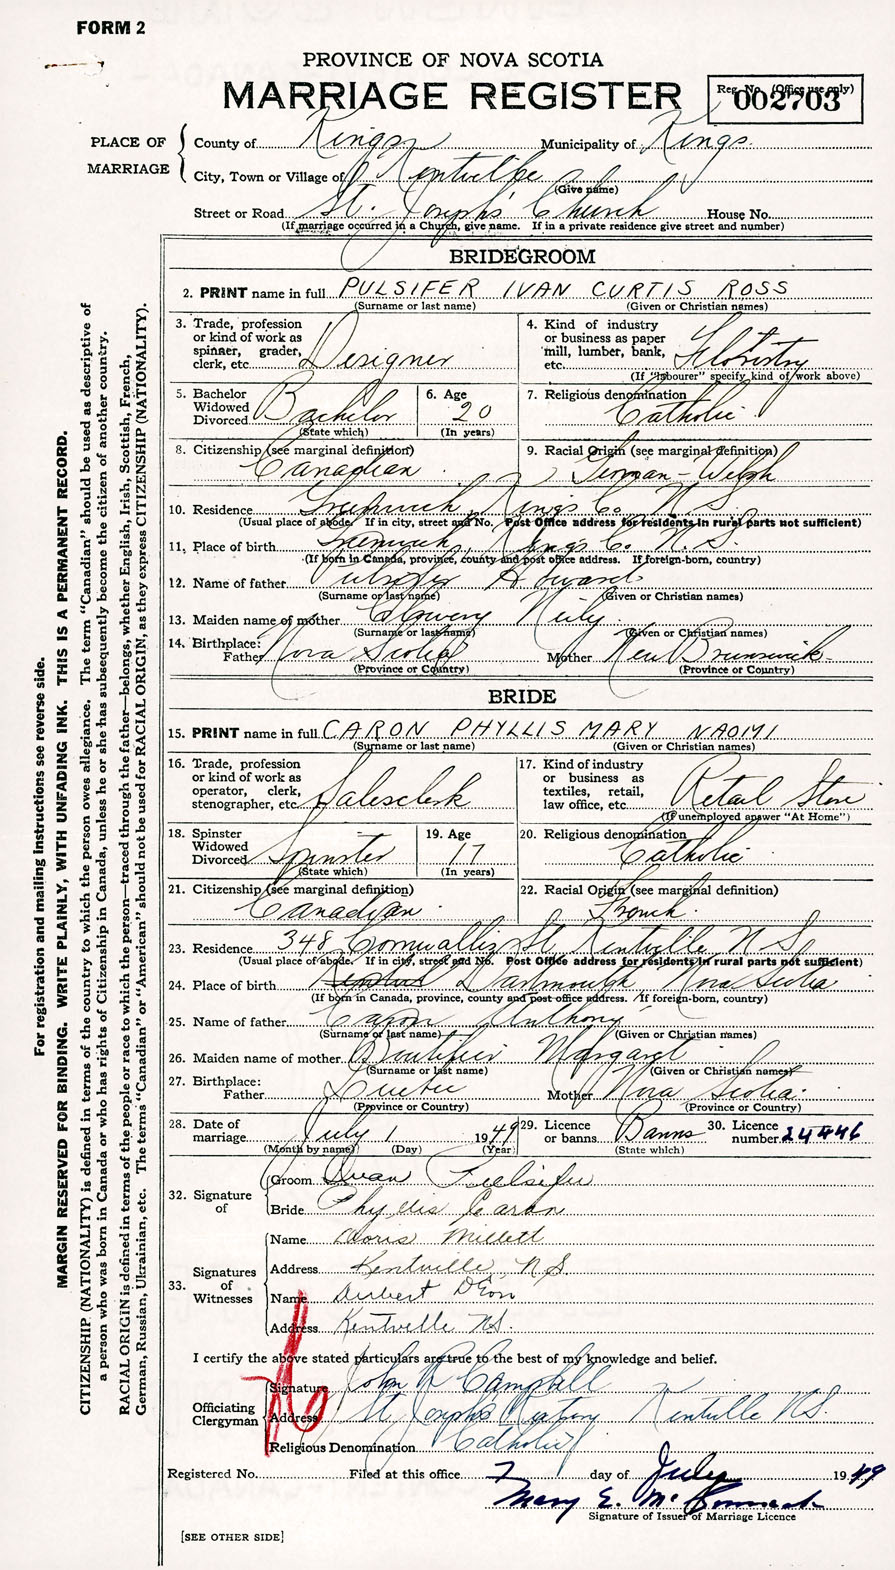 FORM 2
PROVINCE OF NOVA SCOTIA
MARRIAGE REGISTER
Reg. No. (Office use only)
002703
PLACE OF MARRIAGE
County of Kings Municipality of Kings
City, Town or Village of Kentville
(Give name)
Street or Road St. Josephs' Church House No.
(If marriage occurred in a Church, give name. If in a private residence give street and number)
BRIDEGROOM
2. PRINT name in full PULSIFER IVAN CURTIS ROSS
(Surname or last name) (Given or Christian names)
3. Trade, profession or kind of work as spinner, grader, clerk, etc. Designer
4. Kind of industry or business as paper mill, lumber, bank, etc. Floristry
(If "labourer" specify kind of work above)
5. Bachelor Widowed Divorced Bachelor
(State which)
6. Age 20
(In years)
7. Religious denomination Catholic
8. Citizenship (see marginal definition) Canadian
9. Racial Origin (see marginal definition) German-Welsh
10. Residence Greenwich, Kings Co. N.S.
(Usual place of abode. If in city, street and No. Post Office address for residents in rural parts not sufficient)
11. Place of birth Greenwich, Kings Co. N.S.
(If born in Canada, province, county and post office address. If foreign-born, country)
12. Name of father Pulsifer Howard
(Surname or last name) (Given or Christian names)
13. Maiden name of mother Neily
(Surname or last name) (Given or Christian names)
14. Birthplace: Father Nova Scotia Mother New Brunswick
(Province or Country) (Province or Country)
BRIDE
15. PRINT name in full CARON PHYLLIS MARY NAOMI
(Surname or last name) (Given or Christian names)
16. Trade, profession or kind of work as operator, clerk, stenographer, etc. Salesclerk
17. Kind of industry or business as textiles, retail, law office, etc. Retail Store
(If unemployed answer "At Home")
18. Spinster Widowed Divorced Spinster
(State which)
19. Age 17
(In years)
20. Religious denomination Catholic
21. Citizenship (see marginal definition) Canadian
22. Racial Origin (see marginal definition) French
23. Residence 348 Cornwallis St. Kentville N.S.
(Usual place of abode. If in city, street and No. Post Office address for residents in rural parts not sufficient)
24. Place of birth Dartmouth Nova Scotia
(If born in Canada, province, county and post office address. If foreign-born, country)
25. Name of father Caron Anthony
(Surname or last name) (Given or Christian names)
26. Maiden name of mother Boutilier Margaret
(Surname or last name) (Given or Christian names)
27. Birthplace: Father Quebec Mother Nova Scotia
(Province or Country) (Province or Country)
28. Date of marriage July 1 1949
(Month by name) (Day) (Year)
29. Licence or banns Banns
(State which)
30. Licence number 24446
32. Signature of
Groom Ivan Pulsifer
Bride Phyllis Caron
33. Signatures of Witnesses
Name Doris Millett
Address Kentville, N.S.
Name D'Eon
Address Kentville N.S.
I certify the above stated particulars are true to the best of my knowledge and belief.
Officiating Clergyman
Signature John R Campbell
Address St Joseph's Rectory Kentville N.S.
Religious Denomination Catholic
Registered No. Filed at this office 7 day of July 1949
Mary E. McCormack
Signature of Issuer of Marriage Licence
[SEE OTHER SIDE]
For registration and mailing instructions see reverse side.
MARGIN RESERVED FOR BINDING. WRITE PLAINLY, WITH UNFADING INK. THIS IS A PERMANENT RECORD.
CITIZENSHIP (NATIONALITY) is defined in terms of the country to which the person owes allegiance. The term "Canadian" should be used as descriptive of
a person who was born in Canada or who has rights of Citizenship in Canada, unless he or she has subsequently become the citizen of another country.
RACIAL ORIGIN is defined in terms of the people or race to which the person—traced through the father—belongs, whether English, Irish, Scottish, French,
German, Russian, Ukrainian, etc. The terms "Canadian" or "American" should not be used for RACIAL ORIGIN, as they express CITIZENSHIP (NATIONALITY).